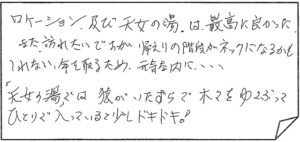 ロケーション及び天女の湯は、最高に良かった。
また、訪れたいですが帰えりの階段がネックになるかも
しれない。年を取るため、元気な内に、・・・・
「天女の湯」では猿がいたずらで木々をゆさぶって
ひとりで入っていると少しドキドキ。